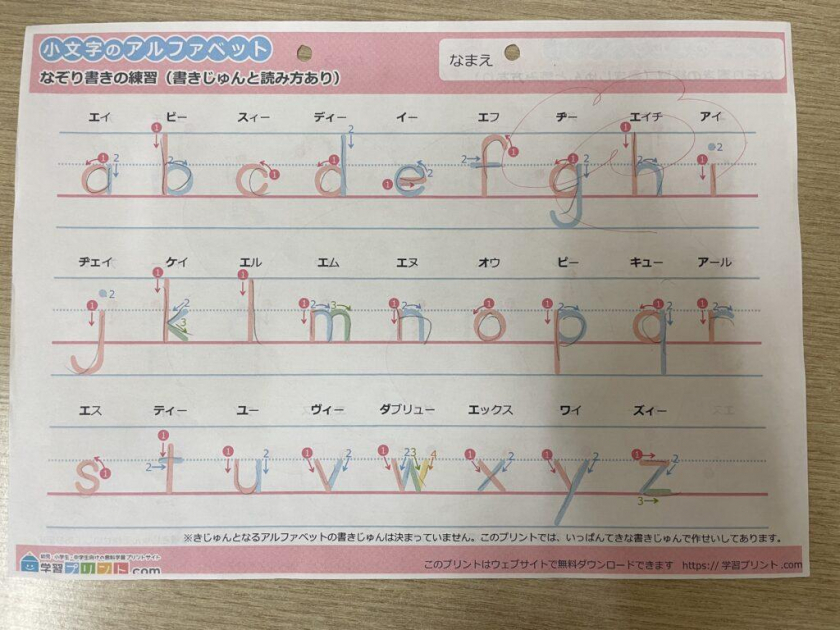 小文字のアルファベット
なぞり書きの練習（書きじゅんと読み方あり）
なまえ
エイ ビー スィー ディー イー エフ ヂー エイチ アイ
a b c d e f g h i
ヂェイ ケイ エル エム エヌ オウ ピー キュー アール
j k l m n o p q r
エス ティー ユー ヴィー ダブリュー エックス ワイ ズィー
s t u v w x y z
※きじゅんとなるアルファベットの書きじゅんは決まっていません。このプリントでは、いっぱんてきな書きじゅんで作せいしてあります。
幼児・小学生・中学生向けの無料学習プリントサイト
学習プリント.com
このプリントはウェブサイトで無料ダウンロードできます https://学習プリント.com